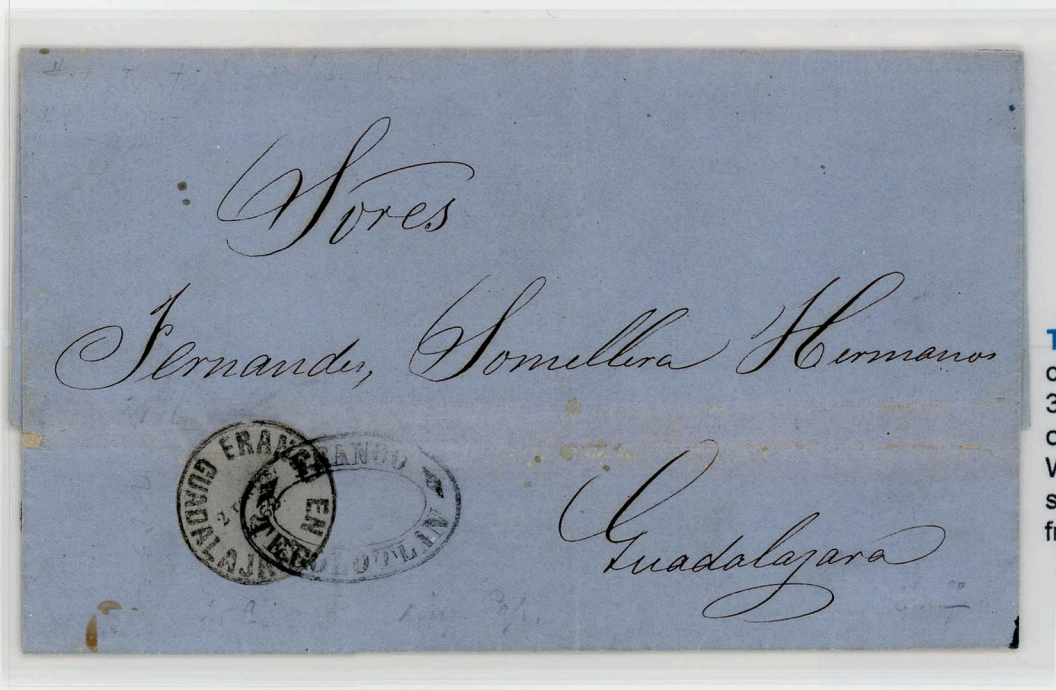 Sores
Fernandes, Somellera Hermanos
Guadalajara
FRANCO EN GUADALAJARA
FRANCO EN TECOLOTLAN